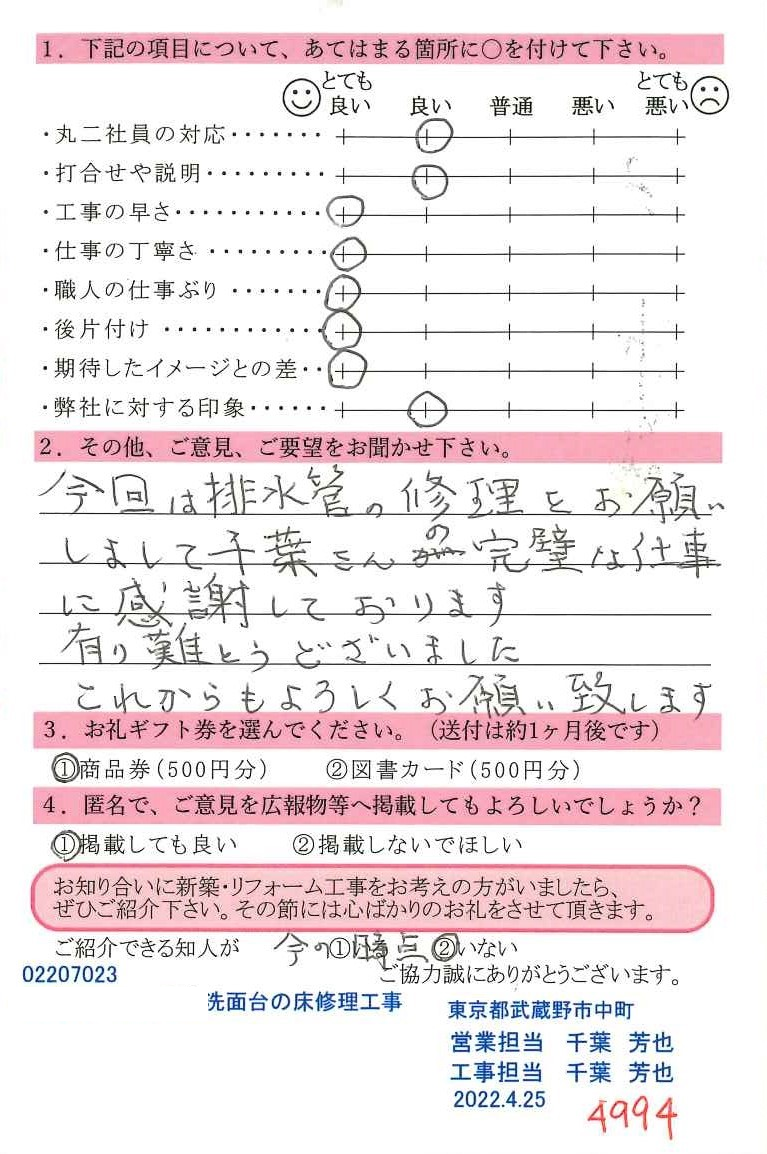 1．下記の項目について、あてはまる箇所に○を付けて下さい。
とても良い 良い 普通 悪い とても悪い
・丸二社員の対応・・・・・・・
・打合せや説明・・・・・・・・・
・工事の早さ・・・・・・・・・・・
・仕事の丁寧さ・・・・・・・・・
・職人の仕事ぶり・・・・・・・
・後片付け・・・・・・・・・・・・
・期待したイメージとの差・・
・弊社に対する印象・・・・・・
2．その他、ご意見、ご要望をお聞かせ下さい。
今回は排水管の修理をお願い
しまして千葉さんの完璧な仕事
に感謝しております
有り難とうございました
これからもよろしくお願い致します
3．お礼ギフト券を選んでください。（送付は約1ヶ月後です）
①商品券(500円分) ②図書カード(500円分)
4．匿名で、ご意見を広報物等へ掲載してもよろしいでしょうか？
①掲載しても良い ②掲載しないでほしい
お知り合いに新築・リフォーム工事をお考えの方がいましたら、
ぜひご紹介下さい。その節には心ばかりのお礼をさせて頂きます。
ご紹介できる知人が 今の時点 ①いる ②いない
02207023 ご協力誠にありがとうございます。
洗面台の床修理工事 東京都武蔵野市中町
営業担当 千葉 芳也
工事担当 千葉 芳也
2022.4.25
4994